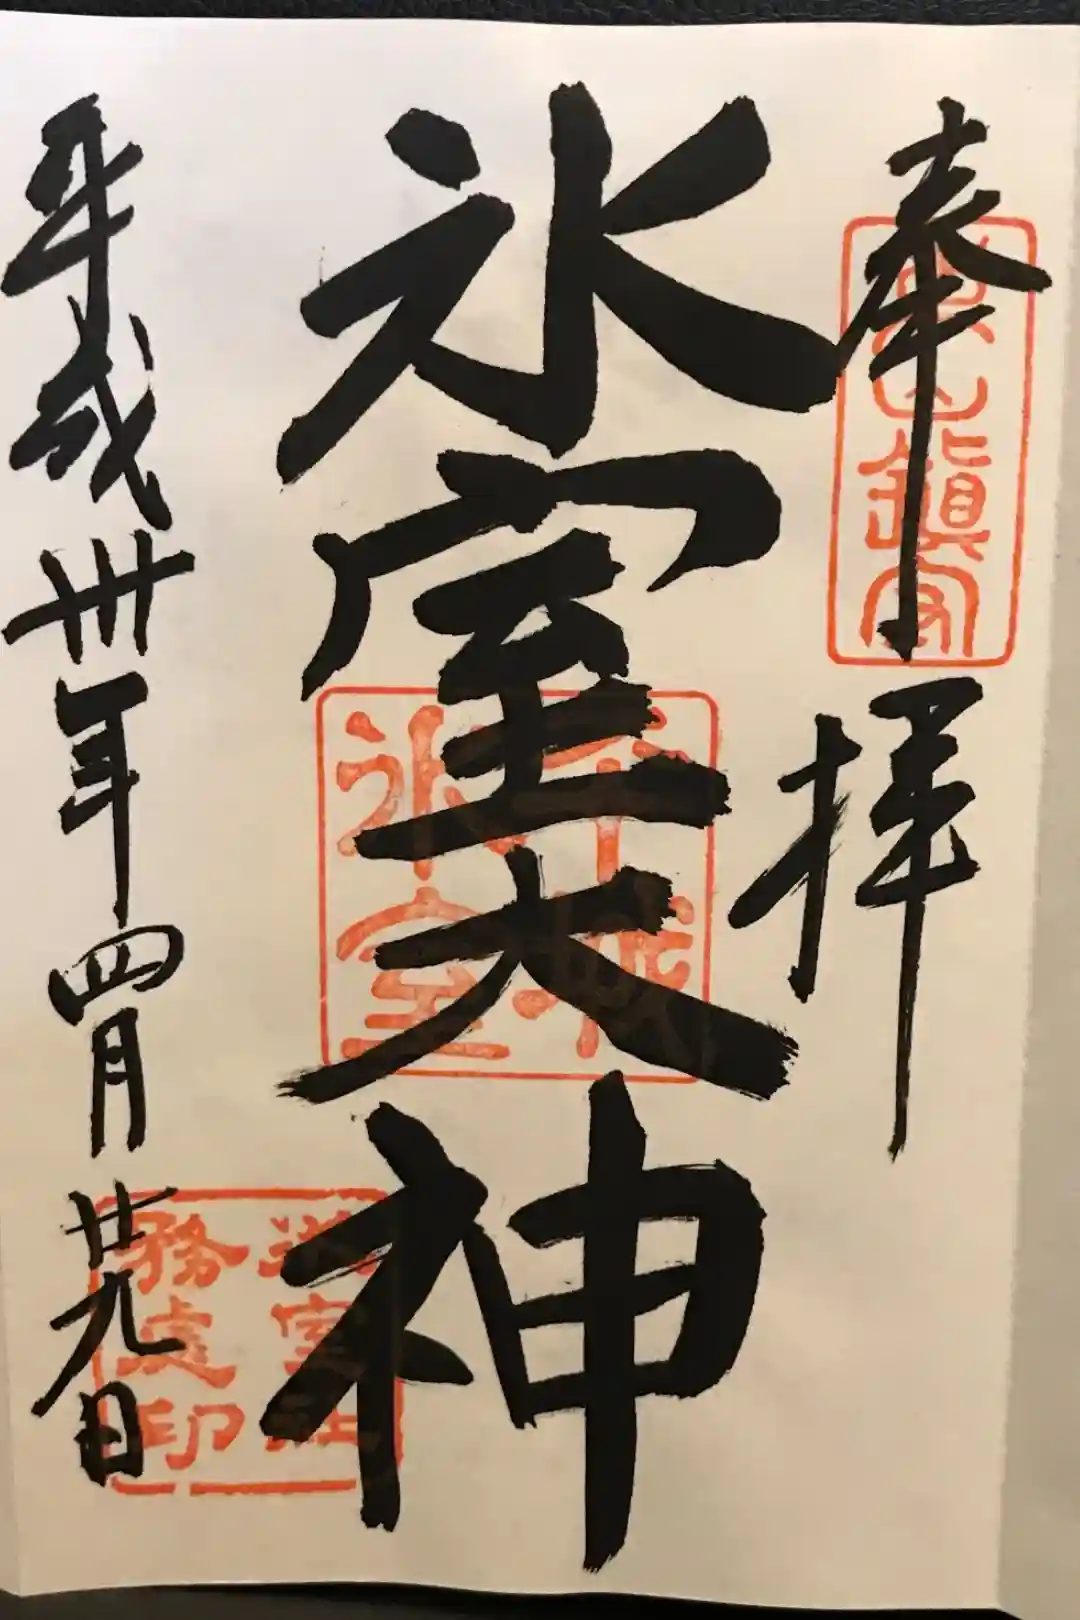 奉拝
鎮守
氷室大神
平城
氷室
平成卅年四月廿九日
氷室社
務処印